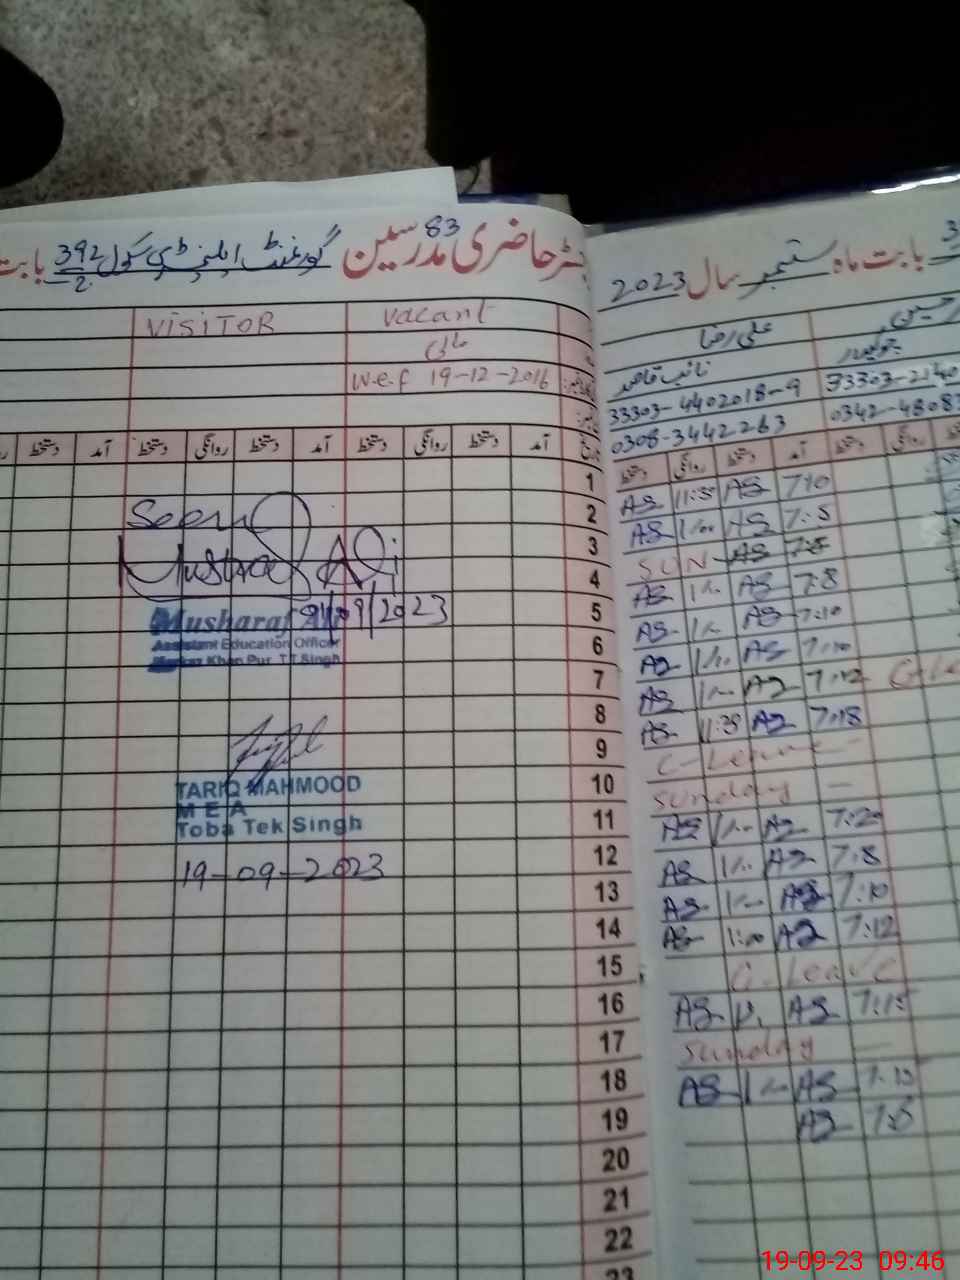 83
رجسٹر حاضری مدرسین گورنمنٹ ایلیمنٹری سکول 392/2 بابت
VISITOR
vacant
مالی
w.e.f 19-12-2016
دستخط آمد دستخط روانگی دستخط آمد دستخط روانگی دستخط آمد تاریخ
1
2
3
4
5
6
7
8
9
10
11
12
13
14
15
16
17
18
19
20
21
22
23
Seen
Musharaf Ali
/09/2023
Musharaf Ali
Assistant Education Officer
Markaz Khan Pur T.T.Singh
TARIQ MAHMOOD
M E A
Toba Tek Singh
19-09-2023
بابت ماہ ستمبر سال 2023
علی رضا
نائب قاصد
چوکیدار
33303-4402018-9
33303-2140
0308-3442263
0342-4808
دستخط روانگی دستخط آمد
AS 11:30 AS 7:10
AS 1:00 AS 7:5
SUN AS 7:5
AS 1:00 AS 7:8
AS 1:00 AS 7:10
AS 1:00 AS 7:10
AS 1:00 AS 7:12
AS 11:30 AS 7:18
C-Leave
Sunday
AS 1:00 AS 7:20
AS 1:00 AS 7:8
AS 1:00 AS 7:10
AS 1:00 AS 7:12
C. Leave
AS AS 7:15
Sunday
AS 1:00 AS 7:15
AS 7:5
19-09-23 09:46